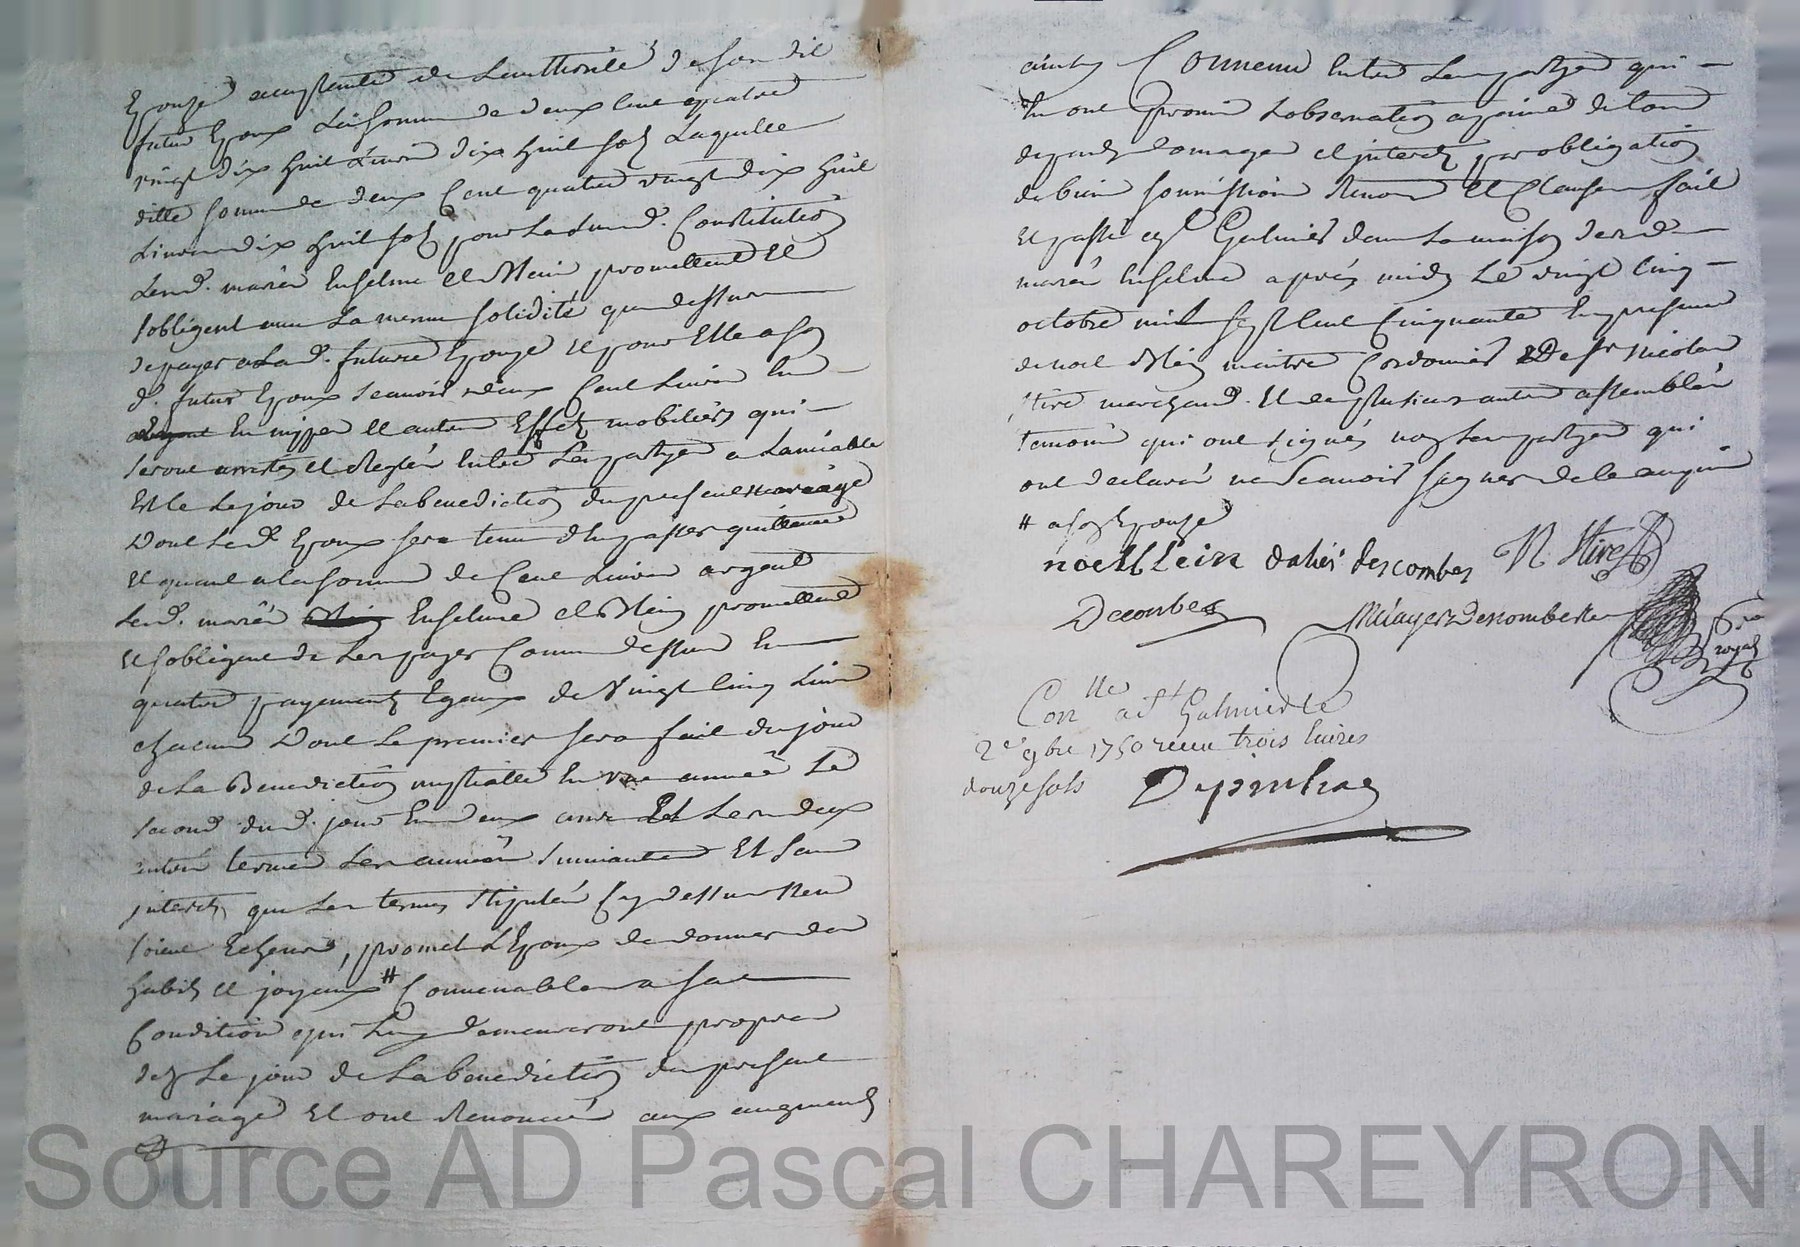 Epouze acceptante de Lauthorité de son dit
futur Epoux La somme de deux Cent quatre
vingt dix huit Livres dix huit sols Laquelle
ditte somme de deux Cent quatre vingt dix huit
Livres dix huit sols pour La susd. Constitution
Lesd. mariés Enselme et Mein promettent Et
sobligent avec La meme solidité que dessus
de payer a La d. future Epouze et pour Elle a son
d. futur Epoux scavoir deux Cent Livres En
En nippes et autres Effets mobiliers qui
seront arretés et Reglés Entre Les partyes a Lamiable
Et Le jour de La benediction du present mariage
Dont Led. Epoux sera tenu d'En passer quittance
Et quant a la somme de Cent Livres argent
Lesd. mariés Enselme et Mein promettent
Et sobligent de Les payer Comme dessus En
quatre payements Egaux de Vingt Cinq Livres
chacun Dont Le premier sera fait du jour
de La Benediction nuptialle En une année Le
second dud. jour En deux ans Et Les deux
autres termes Les années suivantes Et sans
interets que Les termes stipulés Cy dessus Ne
soient Echeus, promet L'Epoux de donner des
habits et joyaux # Convenables a sa
Condition qui Luy demeureront propres
des Le jour de La benediction du present
mariage Et ont Renoncé aux augments
ainsy Convenu Entre Les partyes qui
En ont promis Lobservation a peine de tous
depends domages et interets par obligation
de biens soumissions Renon. Et Clauses fait
Et passé a St Galmier dans La maison desd.
mariés Enselme après midy Le vingt Cinq
octobre mil sept Cent Cinquante En presence
de noel Mein maitre Cordonnier & De sr Nicolas
Stire marchand. Et de plusieurs autres assemblés
temoins qui ont signés non Les partyes qui
ont declarés ne Scavoir signer de ce enquis
# a son Epouze
noel Mein dahier descombes N Stire
Decombes Melayer Descombes
Con lle a St Galmier le
2e 9bre 1750 receu trois livres
douze sols Depinhac
Source AD Pascal CHAREYRON